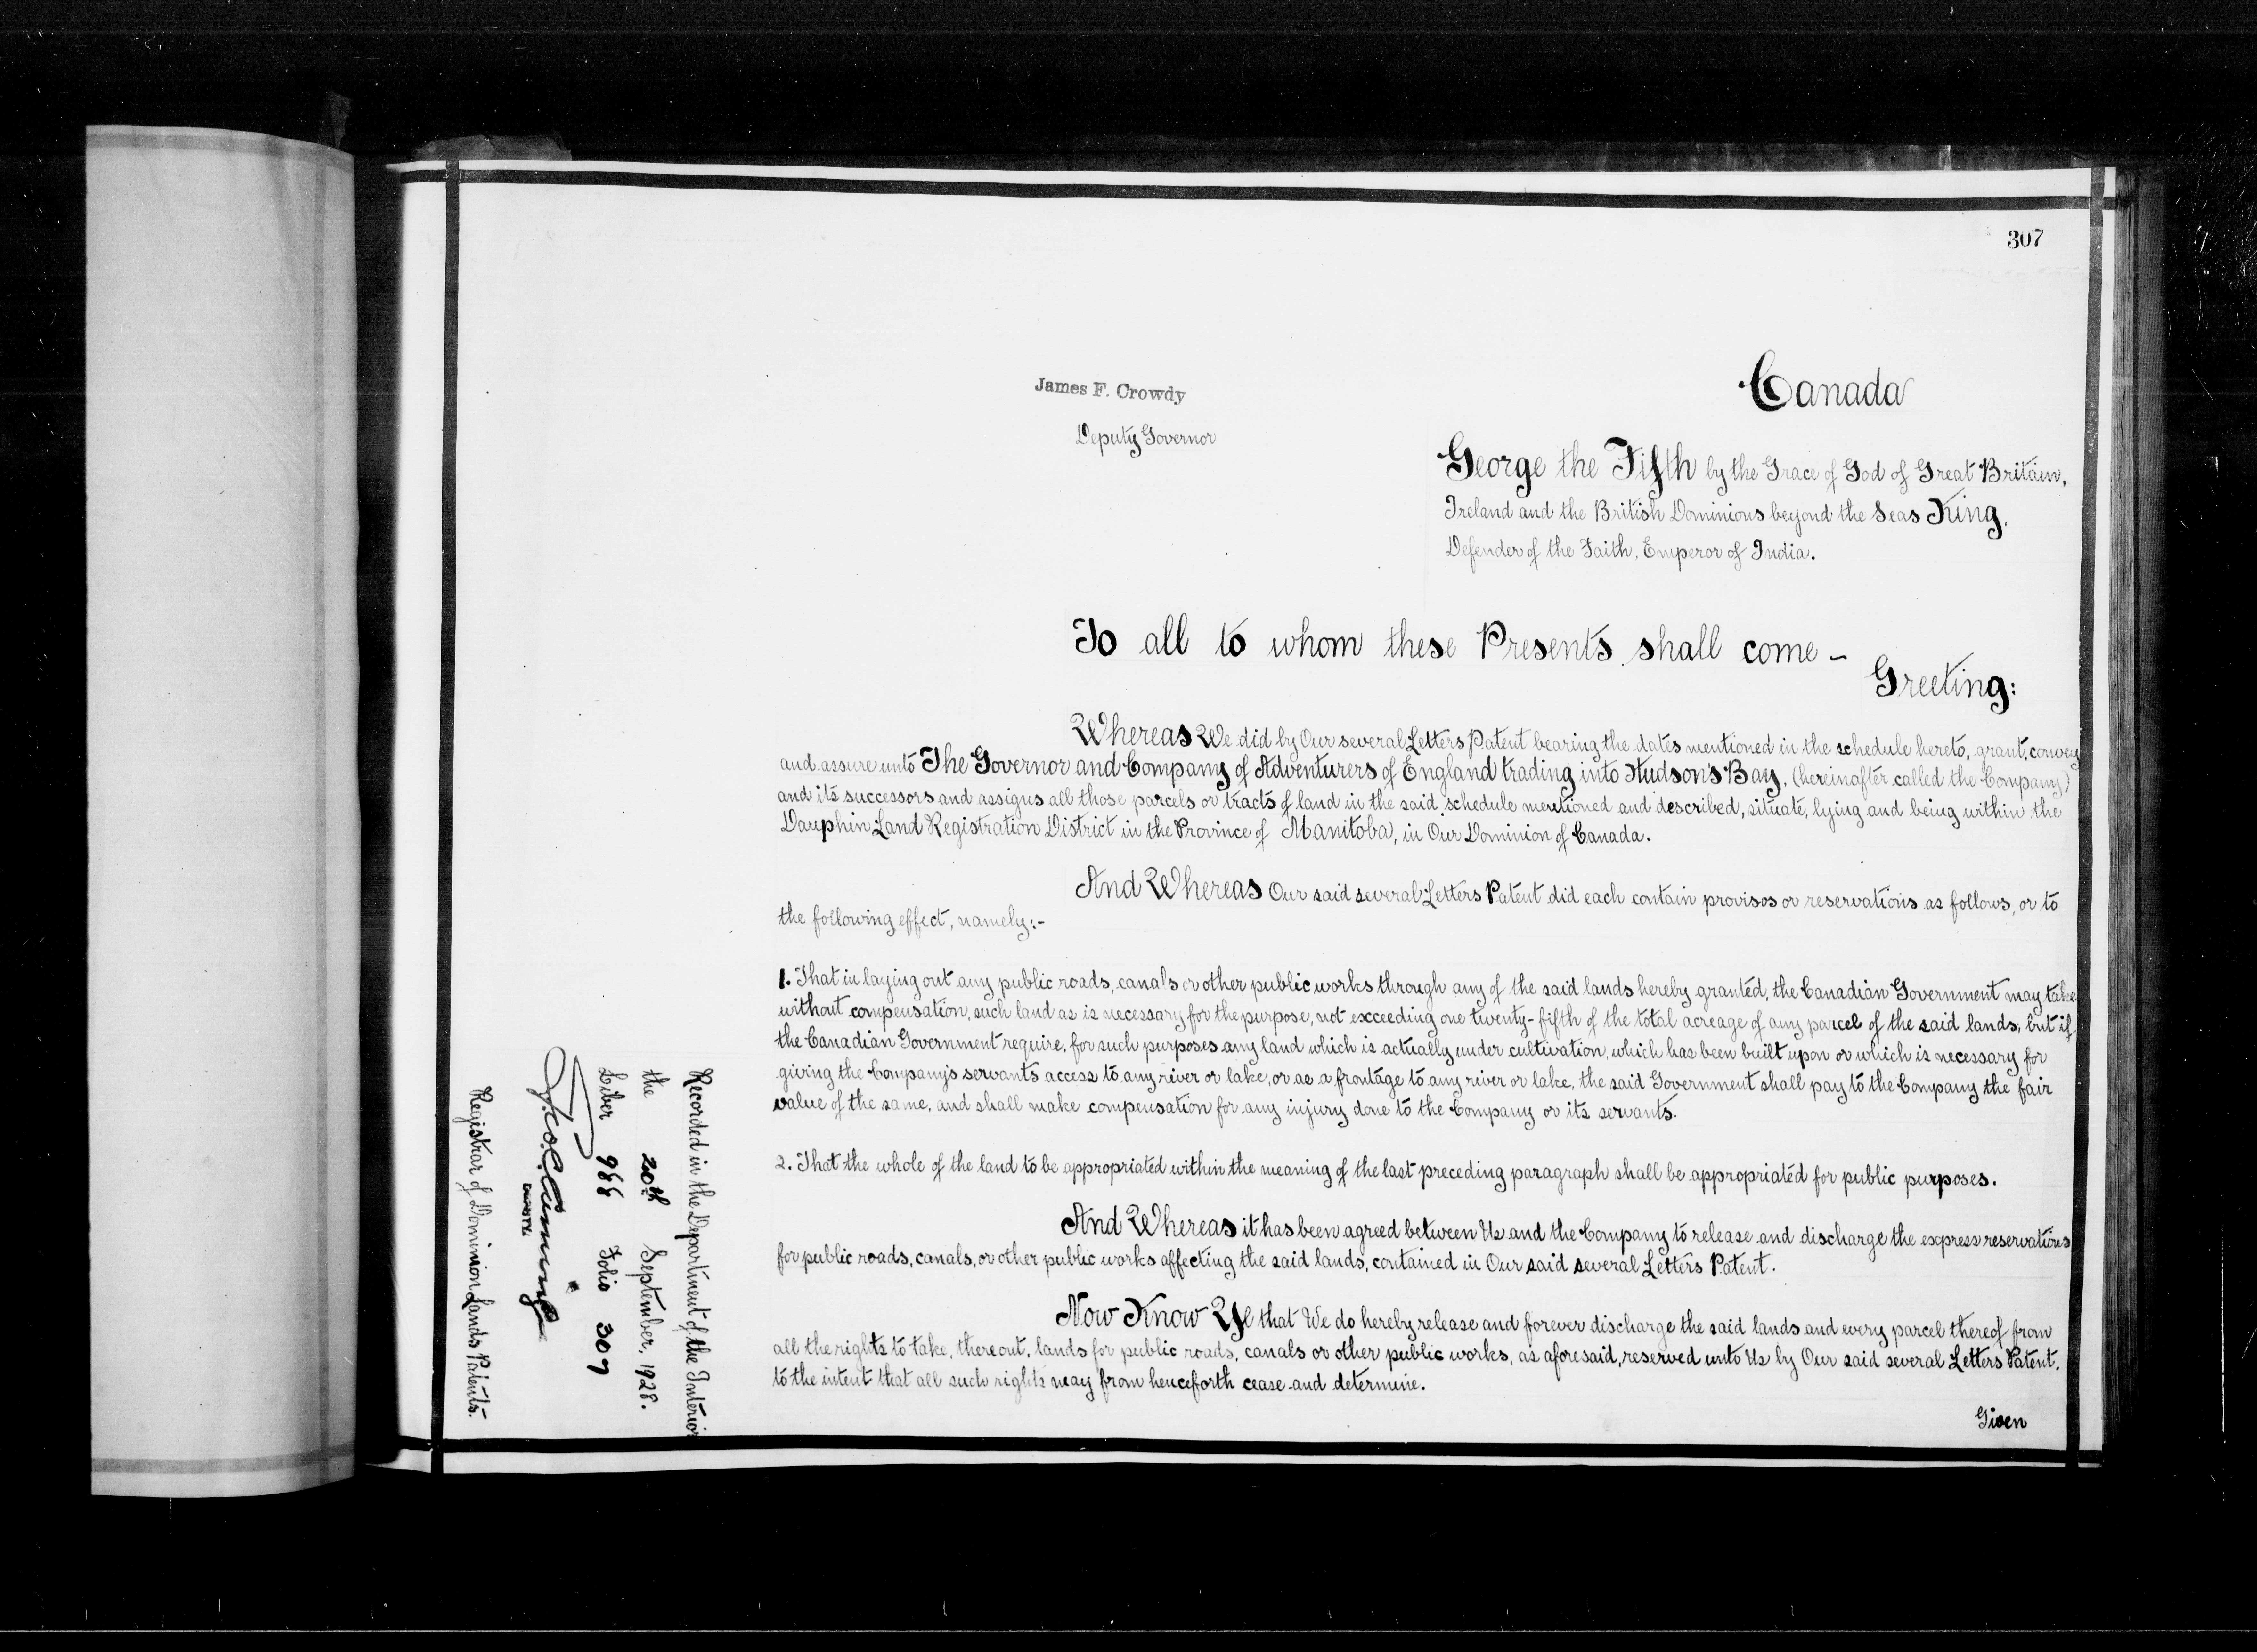 307
James F. Crowdy
Deputy Governor
Canada
George the Fifth by the Grace of God of Great Britain,
Ireland and the British Dominions beyond the Seas King,
Defender of the Faith, Emperor of India.
To all to whom these Presents shall come -
Greeting:
Whereas We did by Our several Letters Patent bearing the dates mentioned in the schedule hereto, grant, convey
and assure unto The Governor and Company of Adventurers of England trading into Hudson's Bay, (hereinafter called the Company)
and its successors and assigns all those parcels or tracts of land in the said schedule mentioned and described, situate, lying and being within the
Dauphin Land Registration District in the Province of Manitoba, in Our Dominion of Canada.
And Whereas Our said several Letters Patent did each contain provisos or reservations as follows, or to
the following effect, namely:-
1. That in laying out any public roads, canals or other public works through any of the said lands hereby granted, the Canadian Government may take
without compensation, such land as is necessary for the purpose, not exceeding one twenty-fifth of the total acreage of any parcel of the said lands; but if
the Canadian Government require, for such purposes any land which is actually under cultivation, which has been built upon or which is necessary for
giving the Company's servants access to any river or lake, or as a frontage to any river or lake, the said Government shall pay to the Company the fair
value of the same, and shall make compensation for any injury done to the Company or its servants.
2. That the whole of the land to be appropriated within the meaning of the last preceding paragraph shall be appropriated for public purposes.
And Whereas it has been agreed between Us and the Company to release and discharge the express reservations
for public roads, canals, or other public works affecting the said lands, contained in Our said several Letters Patent.
Now Know Ye that We do hereby release and forever discharge the said lands and every parcel thereof from
all the rights to take, thereout, lands for public roads, canals or other public works, as aforesaid, reserved unto Us by Our said several Letters Patent,
to the intent that all such rights may from henceforth cease and determine.
Given
Recorded in the Department of the Interior
the 20th September, 1928.
Liber 966 Folio 307
DEPUTY
Registrar of Dominion Lands Patents.